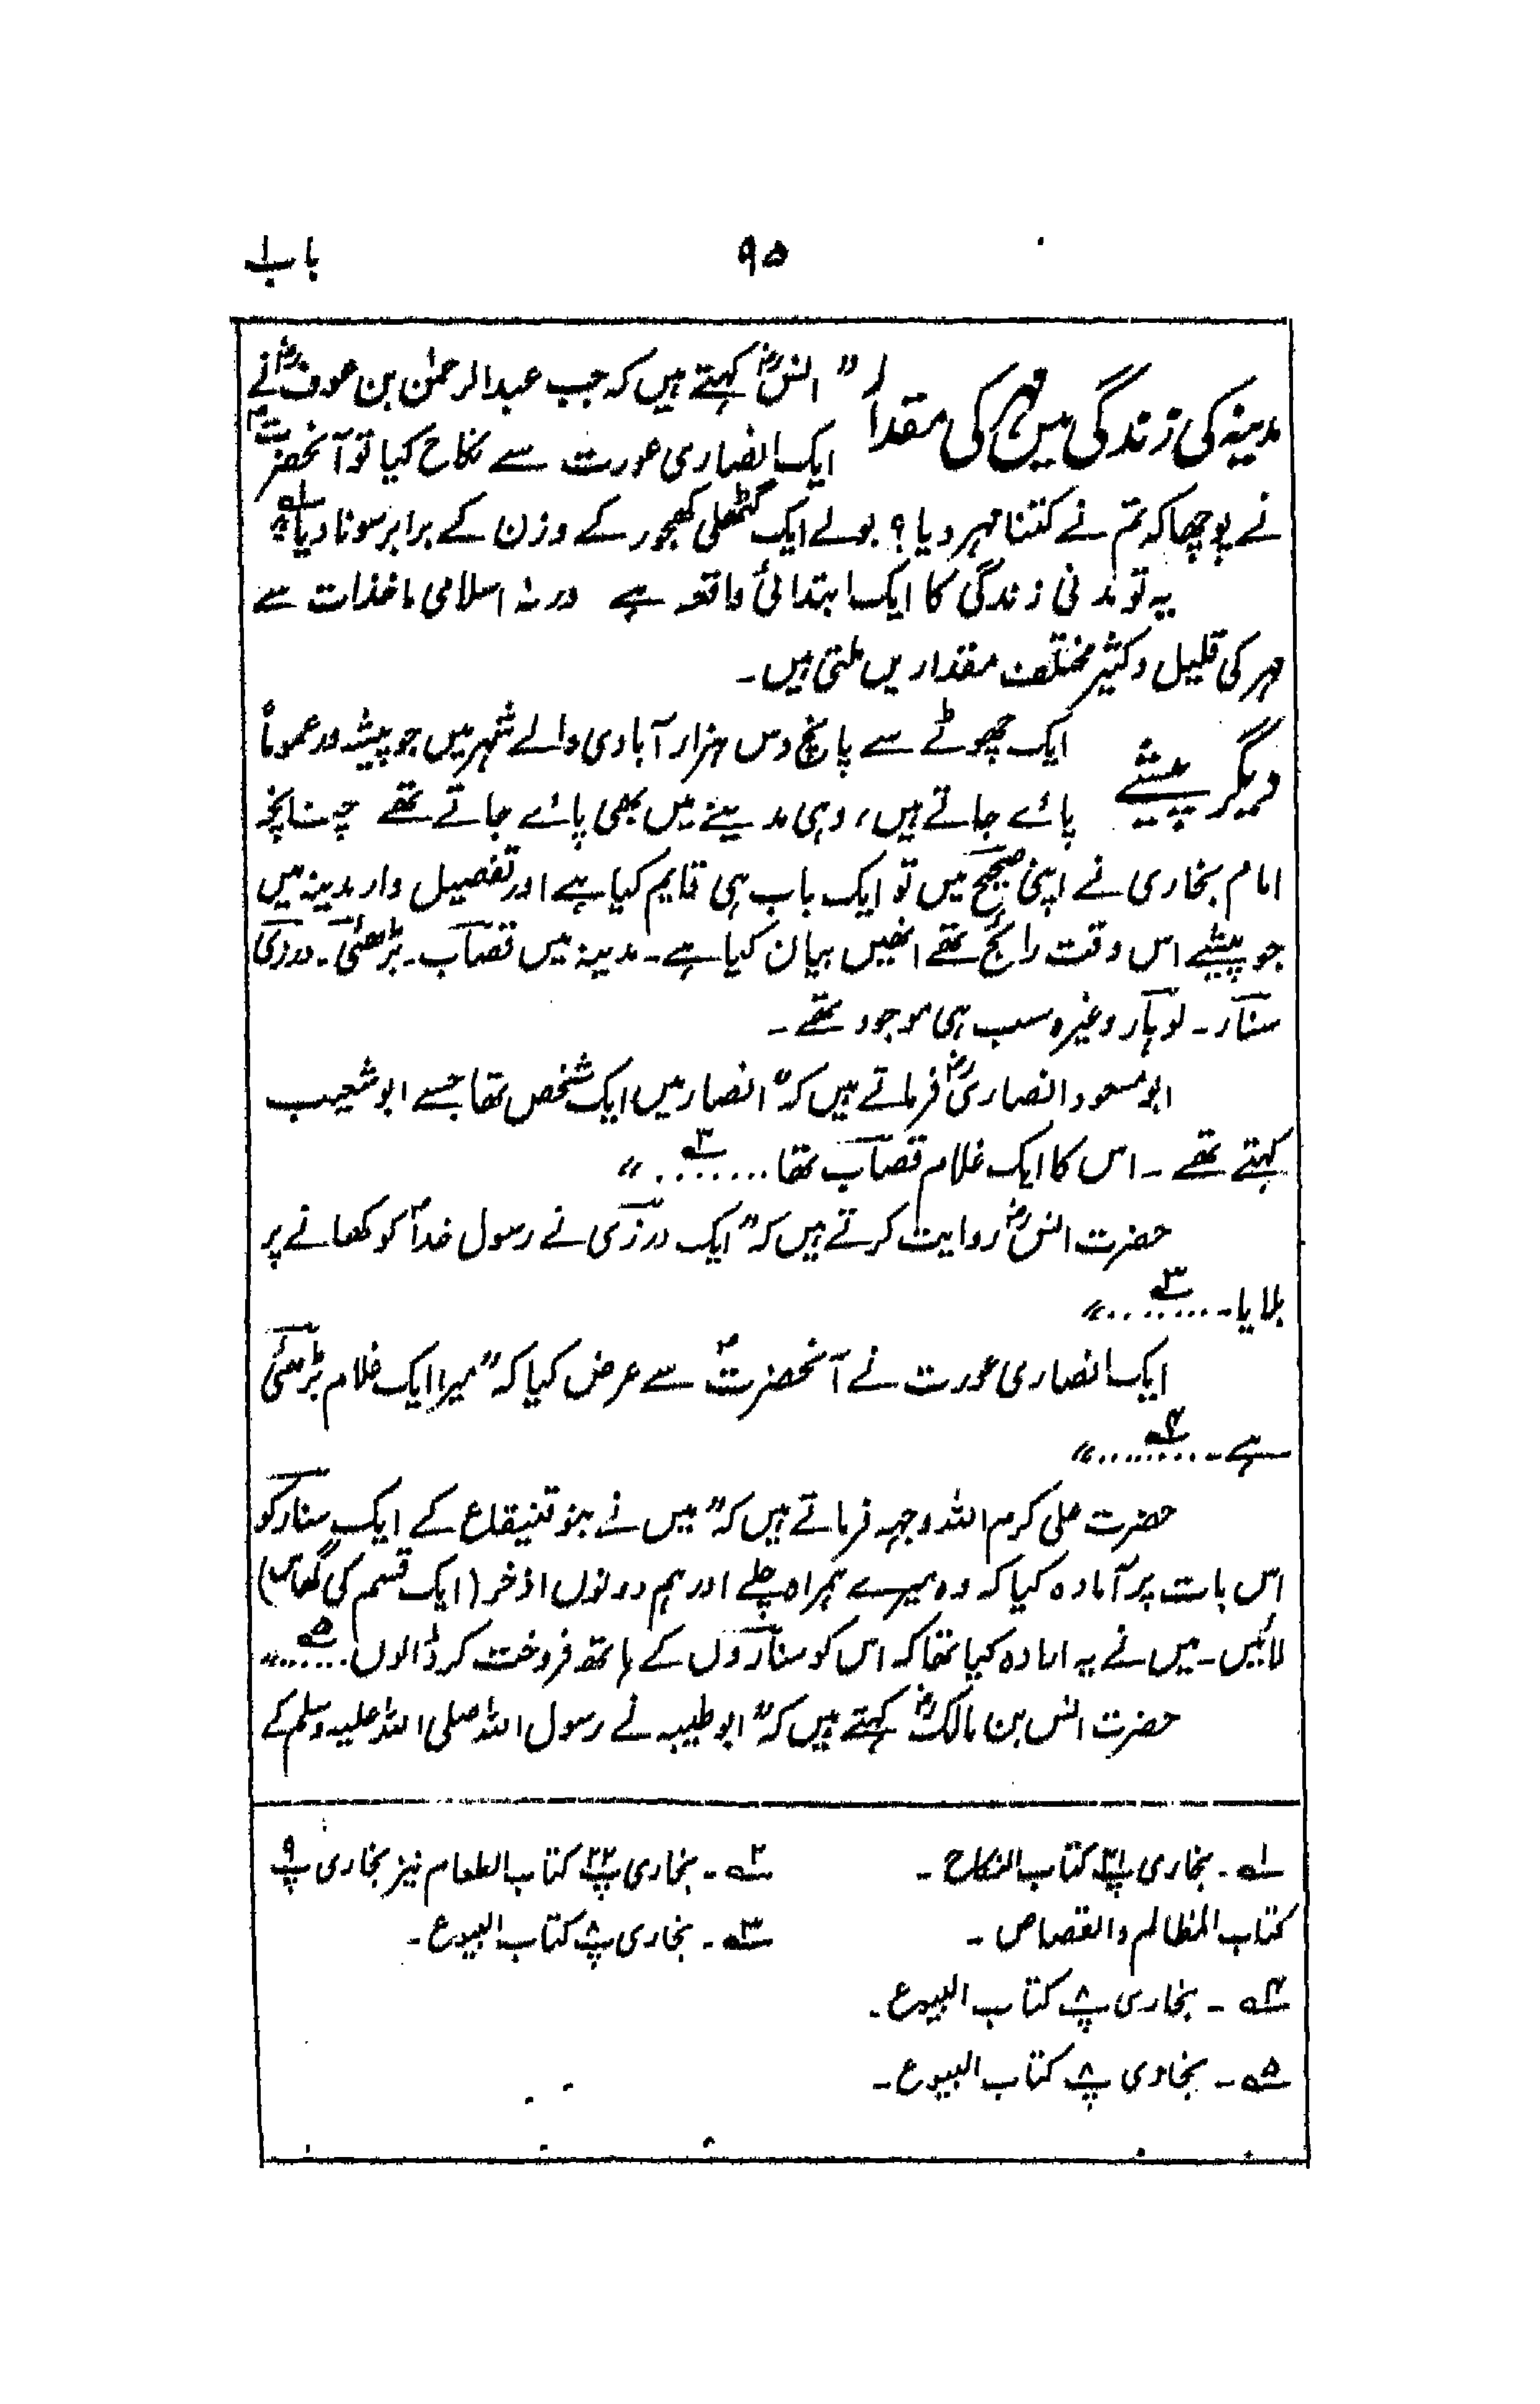 باب۱
۹۵
مدینہ کی زندگی میں مہر کی مقدار
"انسؓ کہتے ہیں کہ جب عبدالرحمٰن بن عوفؓ نے
ایک انصاری عورت سے نکاح کیا تو آنحضرتؐ
نے پوچھا کہ تم نے کتنا مہر دیا؟ بولے ایک گٹھلی کھجور کے وزن کے برابر سونا دیا۱؎"
یہ تو مدنی زندگی کا ایک ابتدائی واقعہ ہے ورنہ اسلامی ماخذات سے
مہر کی قلیل و کثیر مختلف مقداریں ملتی ہیں۔
دیگر پیشے
ایک چھوٹے سے پانچ دس ہزار آبادی والے شہر میں جو پیشہ ور عموماً
پائے جاتے ہیں، وہی مدینے میں بھی پائے جاتے تھے چنانچہ
امام بخاری نے اپنی صحیح میں تو ایک باب ہی قایم کیا ہے اور تفصیل وار مدینہ میں
جو پیشے اس وقت رائج تھے انھیں بیان کیا ہے۔ مدینہ میں قصاب۔ بڑھئی۔ درزی
سنار۔ لوہار وغیرہ سب ہی موجود تھے۔
ابو مسعود انصاریؓ فرماتے ہیں کہ "انصار میں ایک شخص تھا جسے ابو شعیب
کہتے تھے۔ اس کا ایک غلام قصاب تھا .......۲؎"
حضرت انسؓ روایت کرتے ہیں کہ "ایک درزی نے رسول خداؐ کو کھانے پر
بلایا۔ ........۳؎"
ایک انصاری عورت نے آنحضرتؐ سے عرض کیا کہ "میرا ایک غلام بڑھئی
ہے۔ .........۴؎"
حضرت علی کرم اللہ وجہہ فرماتے ہیں کہ "میں نے بنو قنیقاع کے ایک سنار کو
اس بات پر آمادہ کیا کہ وہ میرے ہمراہ چلے اور ہم دونوں اذخر (ایک قسم کی گھاس)
لائیں۔ میں نے یہ ارادہ کیا تھا کہ اس کو سناروں کے ہاتھ فروخت کر ڈالوں .......۵؎"
حضرت انس بن مالکؓ کہتے ہیں کہ "ابو طیبہ نے رسول اللہ صلی اللہ علیہ وسلم کے
۱؎۔ بخاری پ۲۱ کتاب النکاح۔
۲؎۔ بخاری پ۲۲ کتاب الطعام نیز بخاری پ۹
کتاب المظالم والقصاص۔
۳؎۔ بخاری پ۸ کتاب البیوع۔
۴؎۔ بخاری پ۸ کتاب البیوع۔
۵؎۔ بخاری پ۸ کتاب البیوع۔